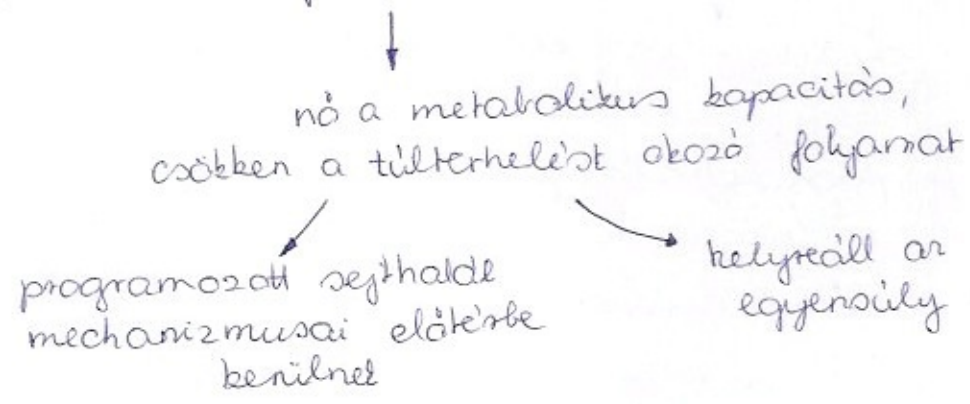 nő a metabolikus kapacitás,
csökken a túlterhelést okozó folyamat
programozott sejthalál
mechanizmusai előtérbe
kerülnek
helyreáll az
egyensúly